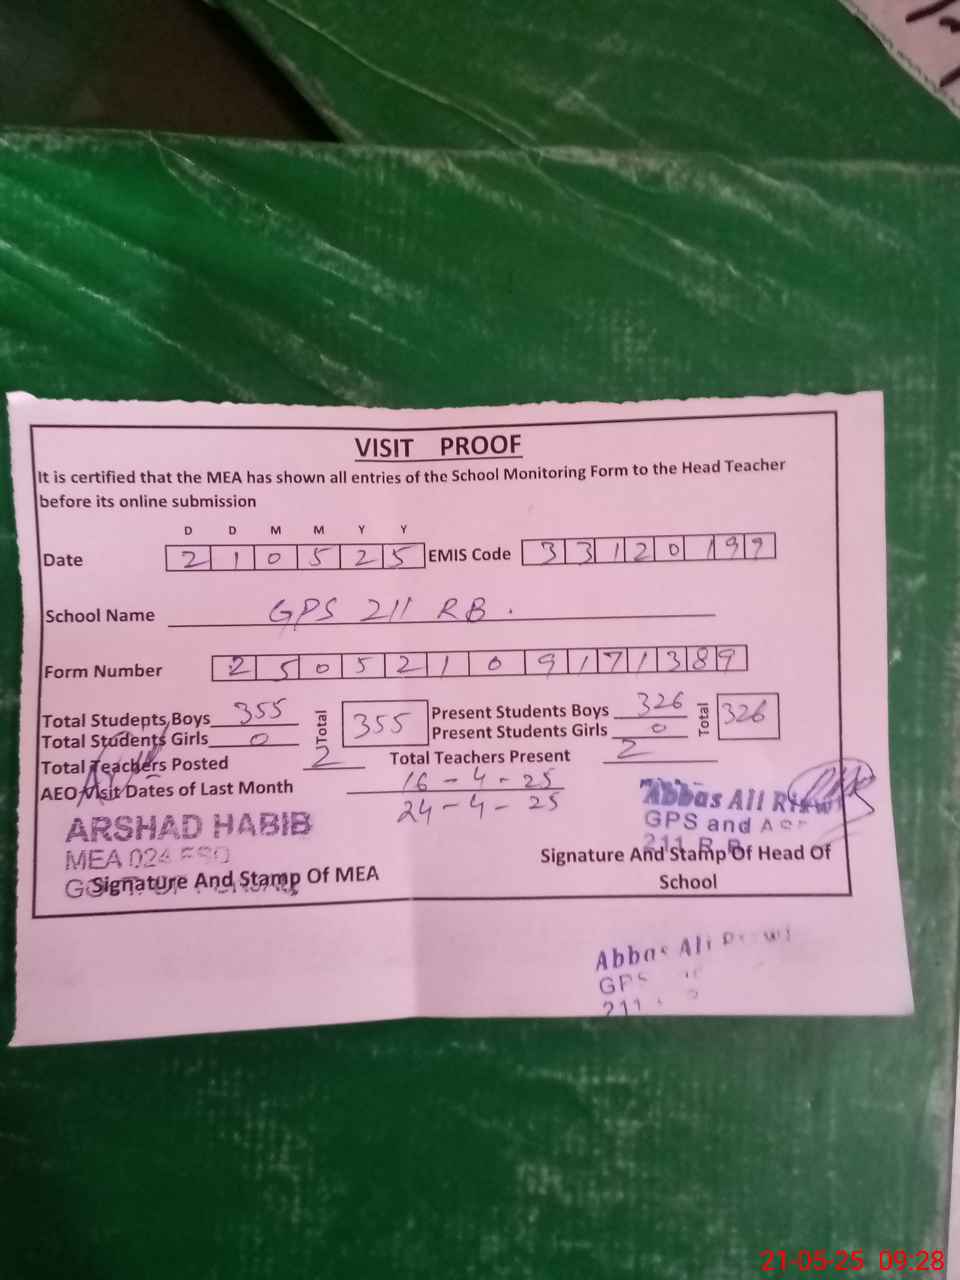 VISIT PROOF
It is certified that the MEA has shown all entries of the School Monitoring Form to the Head Teacher
before its online submission
D D M M Y Y
Date 2 1 0 5 2 5 EMIS Code 3 3 1 2 0 1 9 9
School Name GPS 211 RB.
Form Number 2 5 0 5 2 1 0 9 1 7 1 3 8 9
Total Students Boys 355 Total 355 Present Students Boys 326 Total 326
Total Students Girls 0 Present Students Girls 0
Total Teachers Posted 2 Total Teachers Present 2
AEO Visit Dates of Last Month 16-4-25
24-4-25
ARSHAD HABIB
MEA 024
Signature And Stamp Of MEA
Abbas Ali
GPS and
211
Signature And Stamp Of Head Of
School
Abbas Ali
211
21-05-25 09:28